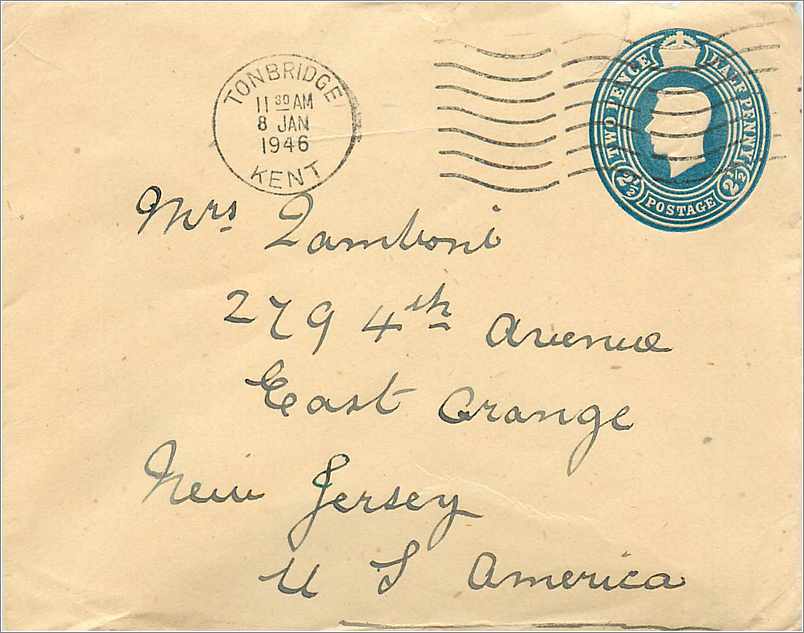 TONBRIDGE
11 30 AM
8 JAN
1946
KENT
TWO PENCE HALF PENNY
2½ POSTAGE 2½
Mrs Zamboni
279 4th Avenue
East Orange
New Jersey
U S America